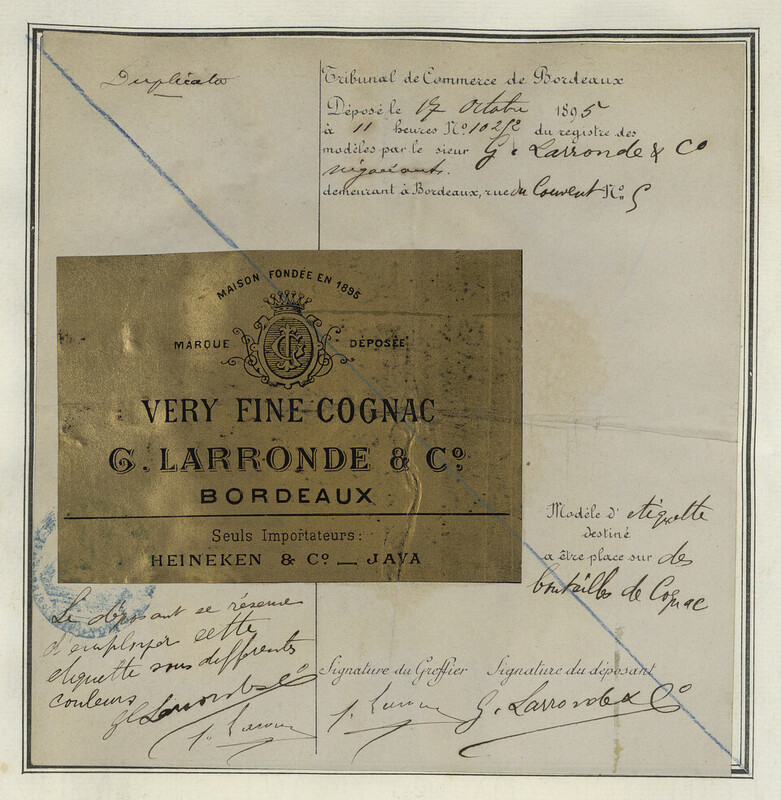 Duplicata
Tribunal de Commerce de Bordeaux
Déposé le 17 Octobre 1895
à 11 heures Nº 10252 du registre des
modèles par le sieur G. Larronde & Co
négociants.
demeurant à Bordeaux, rue du Couvent Nº 5
MAISON FONDÉE EN 1895
MARQUE DÉPOSÉE
VERY FINE COGNAC
G. LARRONDE & Cº
BORDEAUX
Seuls Importateurs:
HEINEKEN & Cº _ JAVA
Modèle d'etiquette
destiné
a être place sur des
bouteilles de Cognac
Le déposant se réserve
d'employer cette
etiquette sous differents
couleurs
G Larronde & Cº
Signature du Greffier Signature du déposant
G. Larronde & Cº